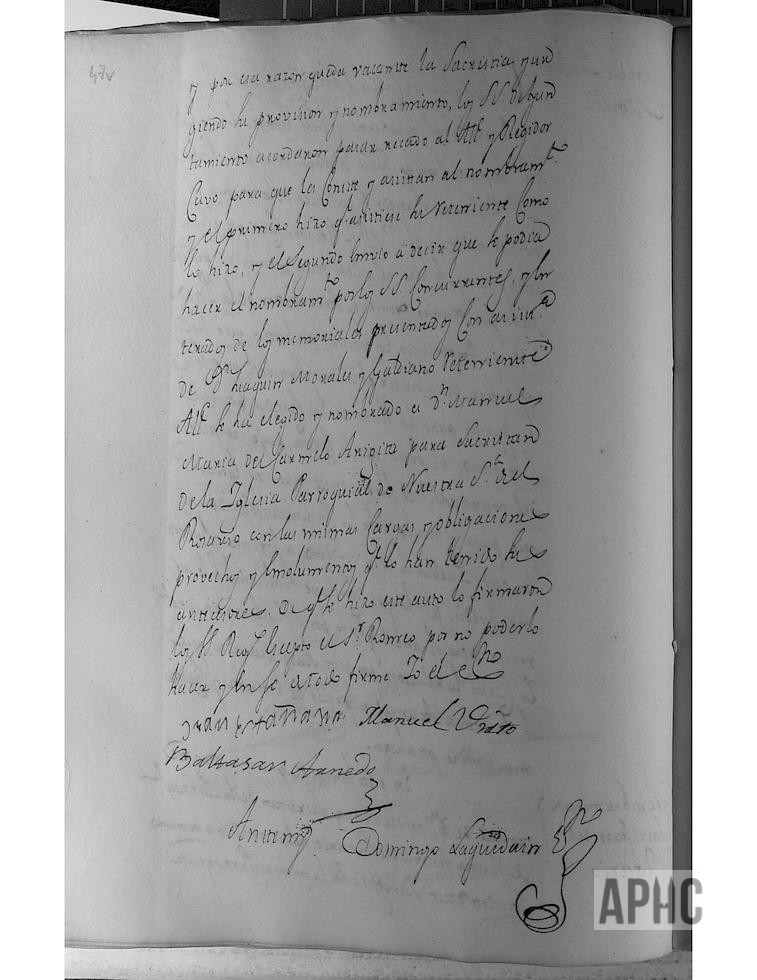 47v
y por esa razon queda vacante la Sacristia, y ur
giendo la provision y nombramiento, los SS. de Ayun
tamiento acordaron pasar recado al Alc.e y Regidor
Cavo para que les Conste y asistan al nombram.to
y el primero hizo q.e asistiese su Veterniente Como
lo hizo, y el Segundo Envio a decir que se podia
hacer el nombram.to por los SS. Concurrentes, y En
terados de los memoriales presentados Con asist.a
de D.n Joaquin Morales y Galdiano Veterniente
Alc.e se ha elegido y nombrado a D.n Manuel
Maria del Carmelo Anigita para Sacristan
de la Iglesia Parroquial de Nuestra S.a del
Rosario con las mismas Cargas y obligaciones
provechos y Emolumentos q.e lo han tenido sus
antecesores. De q.e se hizo este auto lo firmaron
los SS. Reg.s Excepto el S.r Romeo por no poderlo
hacer y En fe de todo firme Yo el Es.no
Juan Manuel
Baltasar Arnedo
Ante my Domingo Laquidain Es.no
APHC